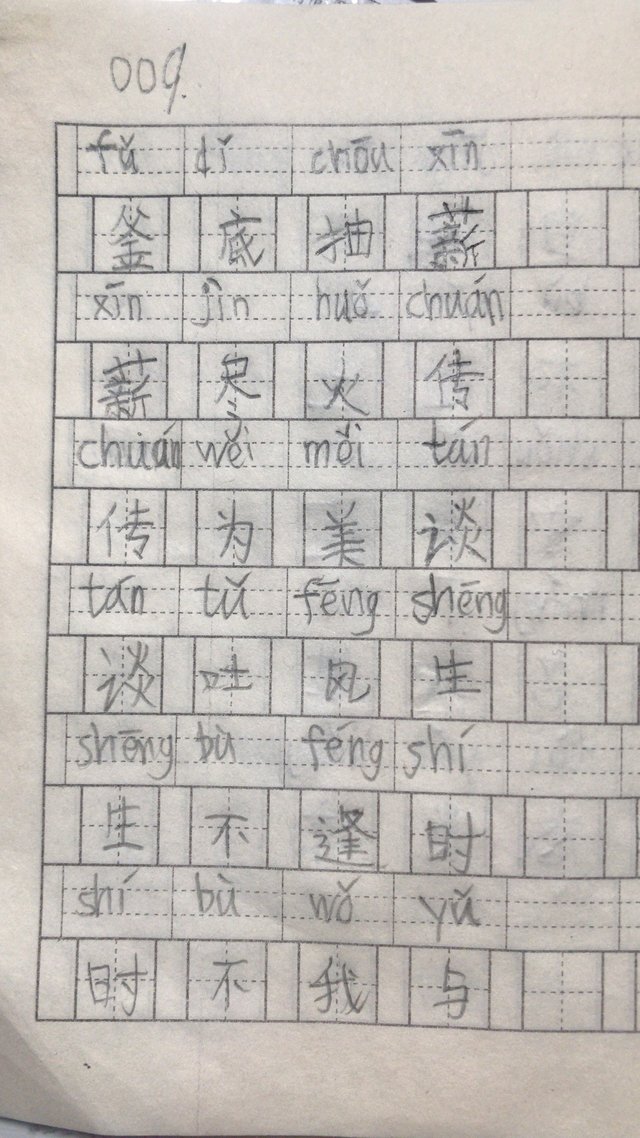 009.
fǔ dǐ chōu xīn
釜底抽薪
xīn jìn huǒ chuán
薪尽火传
chuán wéi měi tán
传为美谈
tán tǔ fēng shēng
谈吐风生
shēng bù féng shí
生不逢时
shí bù wǒ yǔ
时不我与